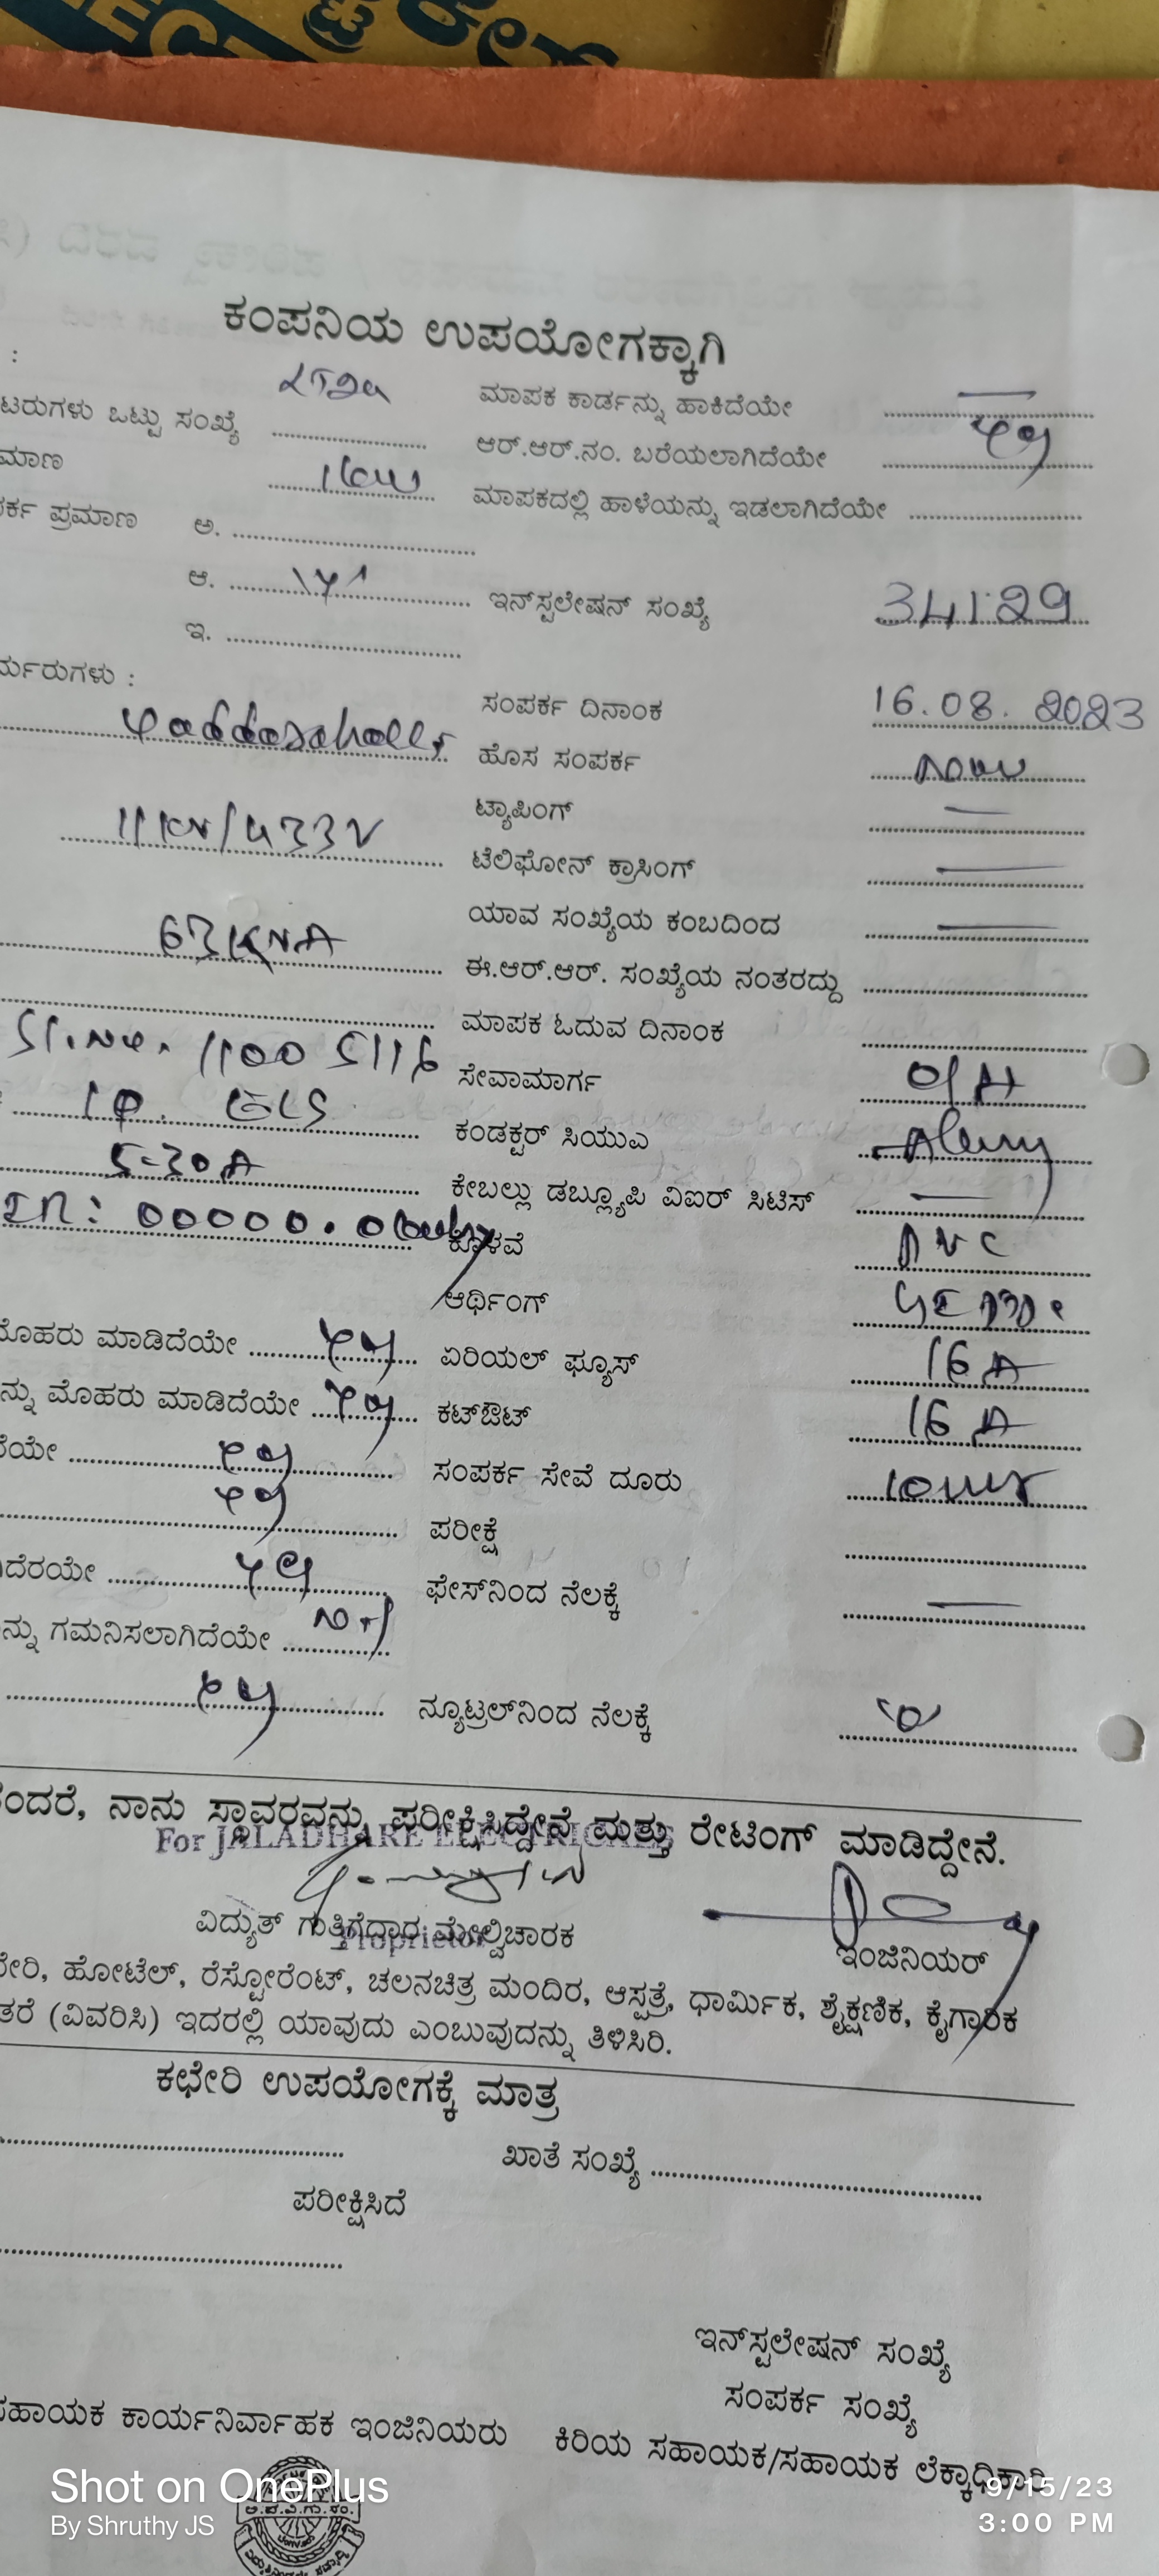 ಕಂಪನಿಯ ಉಪಯೋಗಕ್ಕಾಗಿ
:
ಮಾಪಕ ಕಾರ್ಡನ್ನು ಹಾಕಿದೆಯೇ
ಟರುಗಳು ಒಟ್ಟು ಸಂಖ್ಯೆ ಆರ್.ಆರ್.ನಂ. ಬರೆಯಲಾಗಿದೆಯೇ
ಮಾಣ ಮಾಪಕದಲ್ಲಿ ಹಾಳೆಯನ್ನು ಇಡಲಾಗಿದೆಯೇ
ರ್ಕ ಪ್ರಮಾಣ ಅ.
ಆ. ಇನ್‌ಸ್ಟಲೇಷನ್ ಸಂಖ್ಯೆ 34129
ಇ.
ರ್ಮರುಗಳು : ಸಂಪರ್ಕ ದಿನಾಂಕ 16.08.2023
ಹೊಸ ಸಂಪರ್ಕ new
ಟ್ಯಾಪಿಂಗ್ —
11KV/433V ಟೆಲಿಫೋನ್ ಕ್ರಾಸಿಂಗ್ —
ಯಾವ ಸಂಖ್ಯೆಯ ಕಂಬದಿಂದ —
63KVA ಈ.ಆರ್.ಆರ್. ಸಂಖ್ಯೆಯ ನಂತರದ್ದು
ಮಾಪಕ ಓದುವ ದಿನಾಂಕ
Sl.No. 11005116 ಸೇವಾಮಾರ್ಗ O/H
ಕಂಡಕ್ಟರ್ ಸಿಯುಎ
5-30A ಕೇಬಲ್ಲು ಡಬ್ಲ್ಯೂಪಿ ವಿಐಆರ್ ಸಿಟಿಸ್ —
IR: 00000.0 ಕೊಳವೆ PVC
ಆರ್ಥಿಂಗ್
ಮೊಹರು ಮಾಡಿದೆಯೇ yes ಏರಿಯಲ್ ಫ್ಯೂಸ್ 16A
ನ್ನು ಮೊಹರು ಮಾಡಿದೆಯೇ yes ಕಟ್‌ಔಟ್ 16A
ದೆಯೇ yes ಸಂಪರ್ಕ ಸೇವೆ ದೂರು 10mtr
yes ಪರೀಕ್ಷೆ
ದೆರಯೇ yes ಫೇಸ್‌ನಿಂದ ನೆಲಕ್ಕೆ —
ನ್ನು ಗಮನಿಸಲಾಗಿದೆಯೇ
yes ನ್ಯೂಟ್ರಲ್‌ನಿಂದ ನೆಲಕ್ಕೆ
ಂದರೆ, ನಾನು ಸ್ಥಾವರವನ್ನು ಪರೀಕ್ಷಿಸಿದ್ದೇನೆ ಮತ್ತು ರೇಟಿಂಗ್ ಮಾಡಿದ್ದೇನೆ.
For JALADHARE ELECTRICALS
ವಿದ್ಯುತ್ ಗುತ್ತಿಗೆದಾರ ಮೇಲ್ವಿಚಾರಕ ಇಂಜಿನಿಯರ್
Proprietor
ೇರಿ, ಹೋಟೆಲ್, ರೆಸ್ಟೋರೆಂಟ್, ಚಲನಚಿತ್ರ ಮಂದಿರ, ಆಸ್ಪತ್ರೆ, ಧಾರ್ಮಿಕ, ಶೈಕ್ಷಣಿಕ, ಕೈಗಾರಿಕ
ತರೆ (ವಿವರಿಸಿ) ಇದರಲ್ಲಿ ಯಾವುದು ಎಂಬುವುದನ್ನು ತಿಳಿಸಿರಿ.
ಕಛೇರಿ ಉಪಯೋಗಕ್ಕೆ ಮಾತ್ರ
ಖಾತೆ ಸಂಖ್ಯೆ
ಪರೀಕ್ಷಿಸಿದೆ
ಇನ್‌ಸ್ಟಲೇಷನ್ ಸಂಖ್ಯೆ
ಸಂಪರ್ಕ ಸಂಖ್ಯೆ
ಸಹಾಯಕ ಕಾರ್ಯನಿರ್ವಾಹಕ ಇಂಜಿನಿಯರು ಕಿರಿಯ ಸಹಾಯಕ/ಸಹಾಯಕ ಲೆಕ್ಕಾಧಿಕಾರಿ
Shot on OnePlus
By Shruthy JS
9/15/23
3:00 PM